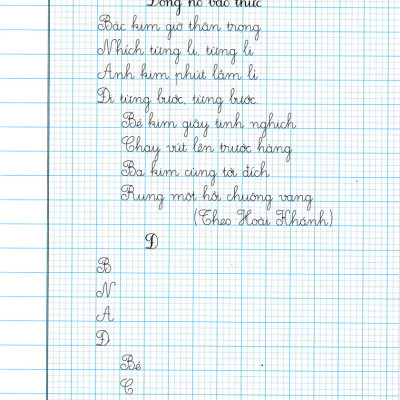 Đồng hồ báo thức
Bác kim giờ thận trọng
Nhích từng li, từng li
Anh kim phút lầm lì
Đi từng bước, từng bước.
Bé kim giây tinh nghịch
Chạy vút lên trước hàng
Ba kim cùng tới đích
Rung một hồi chuông vang
(Theo Hoài Khánh)
Đ
B
N
A
Đ
Bé
C